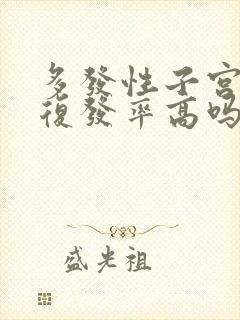 多發性子宮
復發率高嗎
盛光祖